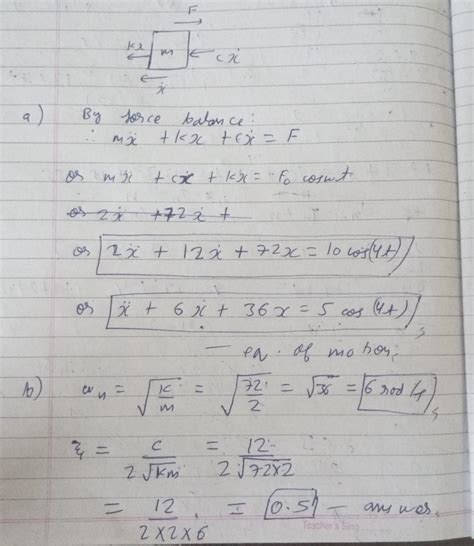 F
kx
m
cẋ
ẍ
a) By force balance:
∴ mẍ + kx + cẋ = F
or mẍ + cẋ + kx = F₀ cosωt
or 2ẍ + 72x +
or 2ẍ + 12ẋ + 72x = 10 cos(4t)
or ẍ + 6ẋ + 36x = 5 cos(4t),
— eq. of motion,
b) ωₙ = √(k/m) = √(72/2) = √36 = 6 rad/s,
ξ = c / 2√km = 12 / 2√72×2
= 12 / 2×2×6 = 0.5 — answer.
Teacher's Sing